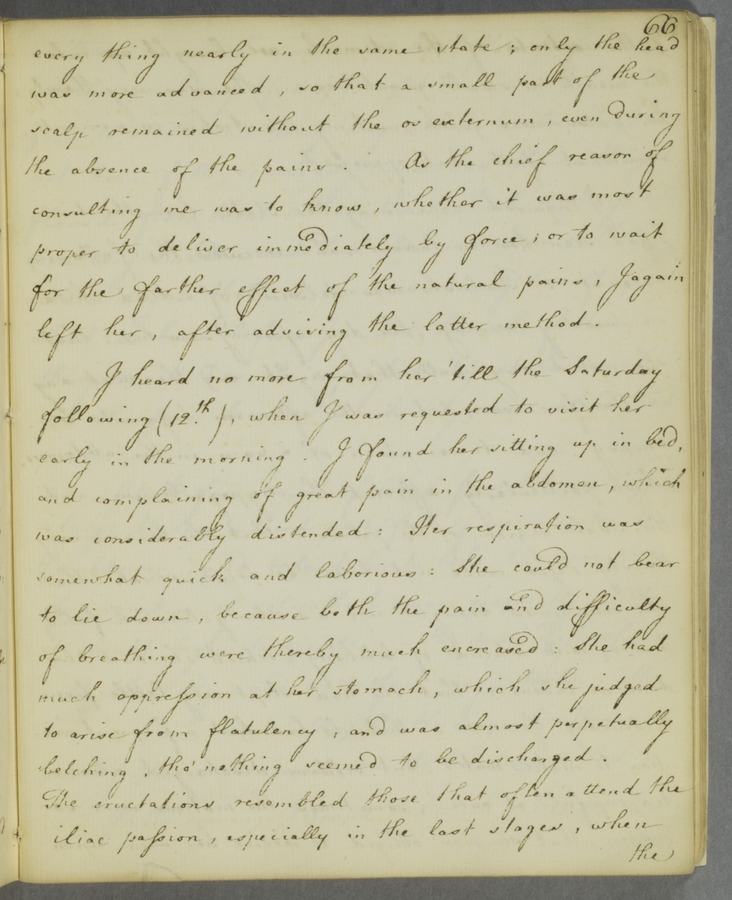 66
every thing nearly in the same state; only the head
was more advanced, so that a small part of the
scalp remained without the os externum, even during
the absence of the pains. As the chief reason of
consulting me was to know, whether it was most
proper to deliver immediately by force; or to wait
for the farther effect of the natural pains, I again
left her, after advising the latter method.
I heard no more from her 'till the Saturday
following (12.th), when I was requested to visit her
early in the morning. I found her sitting up in bed,
and complaining of great pain in the abdomen, which
was considerably distended: Her respiration was
somewhat quick and laborious: She could not bear
to lie down, because both the pain and difficulty
of breathing were thereby much encreased: She had
much oppression at her stomach, which she judged
to arise from flatulency, and was almost perpetually
belching, tho' nothing seemed to be discharged.
The eructations resembled those that often attend the
iliac passion, especially in the last stages, when
the